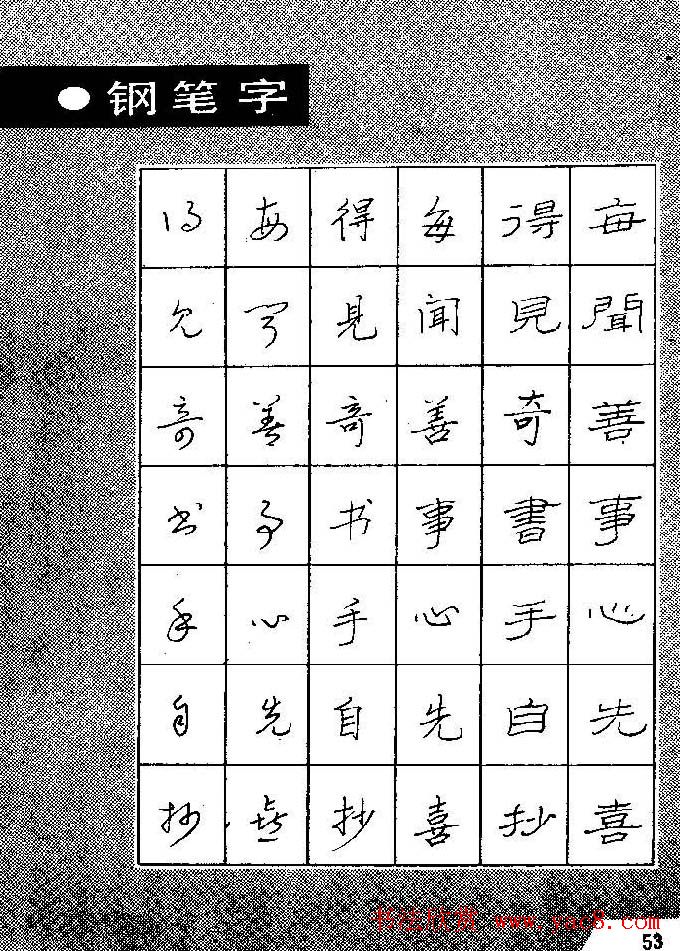 钢笔字
每聞善事心先喜
得見奇書手自抄
每闻善事心先喜
得見奇书手自抄
每闻善事心先喜
得见奇书手自抄
书法欣赏 www.yac8.com
53